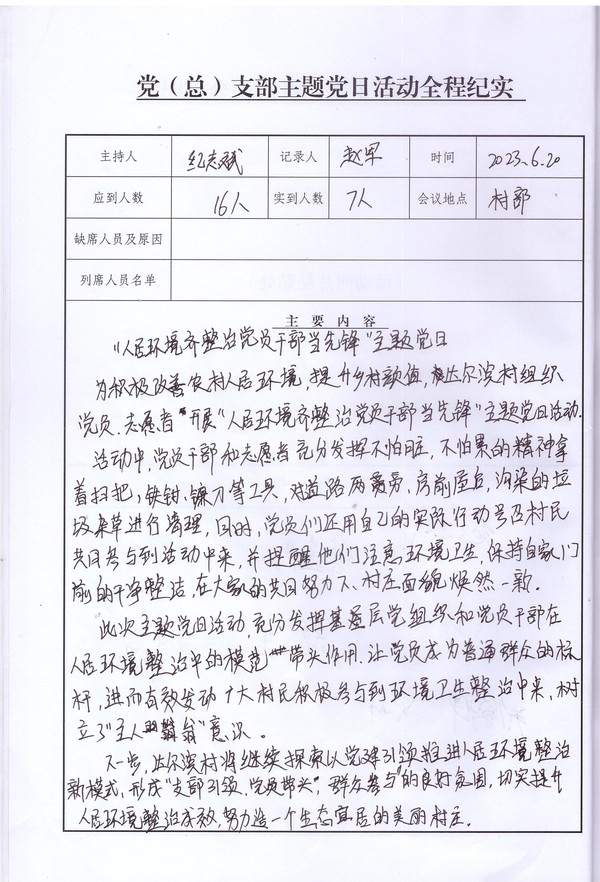 党（总）支部主题党日活动全程纪实
主持人 纪志斌 记录人 赵军 时间 2023.6.20
应到人数 16人 实到人数 7人 会议地点 村部
缺席人员及原因
列席人员名单
主要内容
“人居环境齐整治党员干部当先锋”主题党日
为积极改善农村人居环境，提升乡村颜值，达尔滨村组织
党员、志愿者开展“人居环境齐整治党员干部当先锋”主题党日活动.
活动中，党员干部和志愿者充分发挥不怕脏，不怕累的精神拿
着扫把、铁钳、镰刀等工具，对道路两旁，房前屋后，沟渠的垃
圾杂草进行清理，同时，党员们还用自己的实际行动号召村民
共同参与到活动中来，并提醒他们注意环境卫生，保持自家门
前的干净整洁，在大家的共同努力下、村庄面貌焕然一新.
此次主题党日活动，充分发挥基层党组织和党员干部在
人居环境整治中的模范带头作用.让党员成为普通群众的标
杆，进而有效发动广大村民积极参与到环境卫生整治中来，树
立了“主人翁”意识。
下一步，达尔滨村将继续探索以党建引领推进人居环境整治
新模式，形成“支部引领，党员带头，群众参与”的良好氛围，切实提升
人居环境整治成效，努力造一个生态宜居的美丽村庄.